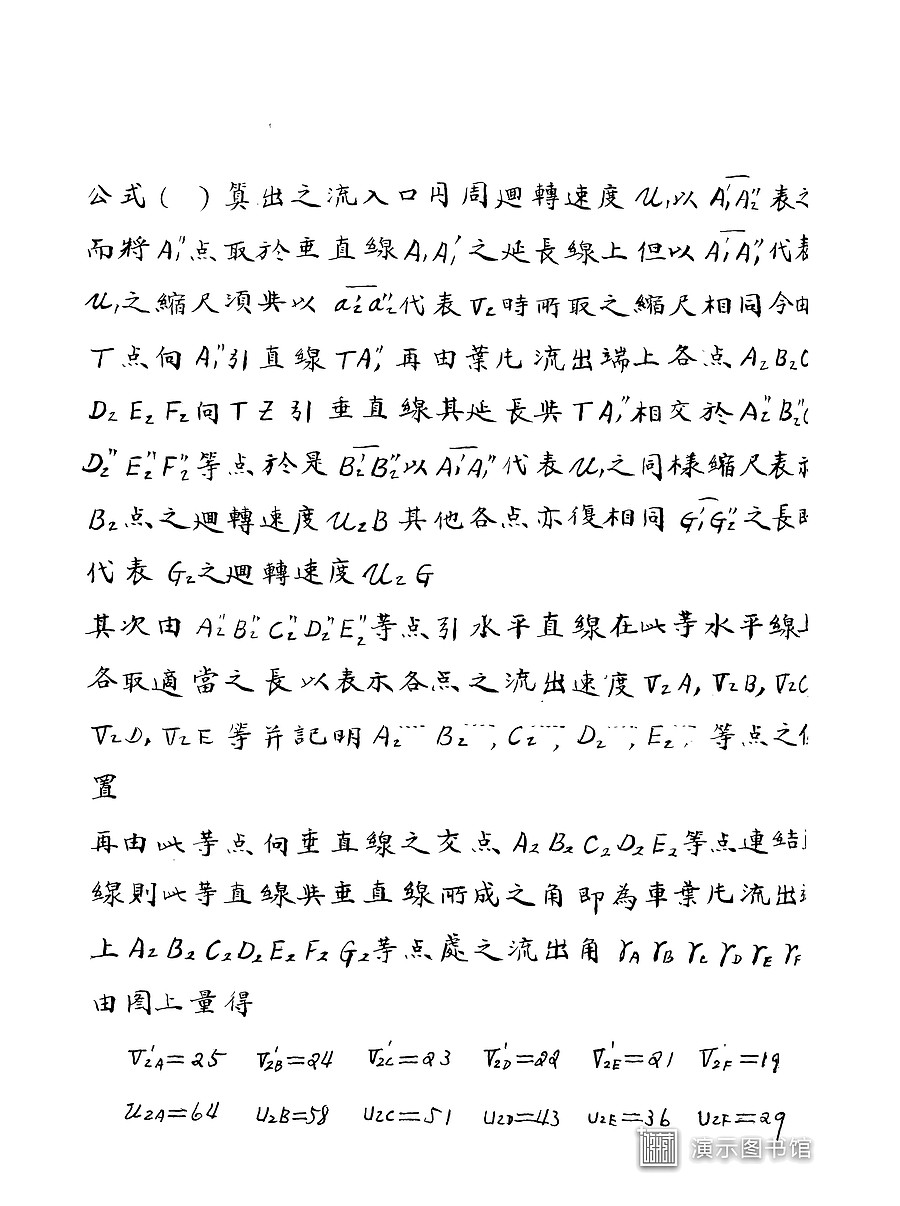 公式( )算出之流入口円周廻轉速度U₁以A₁'A₂"表之
而將A₁"点取於垂直線A₁A₁'之延長線上但以A₁'A₁"代表
U₁之縮尺須與以a₂'a₂"代表V₂時所取之縮尺相同今由
T点向A₁"引直線TA₁"再由葉片流出端上各点A₂B₂C
D₂E₂F₂向TZ引垂直線其延長與TA₁"相交於A₂"B₂"C
D₂"E₂"F₂"等点於是B₂'B₂"以A₁'A₁"代表U₁之同樣縮尺表示
B₂点之廻轉速度U₂B其他各点亦復相同G₁'G₂"之長即
代表G₂之廻轉速度U₂G
其次由A₂"B₂"C₂"D₂"E₂"等点引水平直線在此等水平線上
各取適當之長以表示各点之流出速度V₂A,V₂B,V₂C
V₂D,V₂E等并記明A₂''''B₂'''',C₂'''',D₂'''',E₂''''等点之位
置
再由此等点向垂直線之交点A₂B₂C₂D₂E₂等点連結直
線則此等直線與垂直線所成之角即為車葉片流出端
上A₂B₂C₂D₂E₂F₂G₂等点處之流出角γA γB γC γD γE γF
由图上量得
V₂'A=25 V₂'B=24 V₂'C=23 V₂'D=22 V₂'E=21 V₂'F=19
U₂A=64 U₂B=58 U₂C=51 U₂D=43 U₂E=36 U₂F=29
演示图书馆